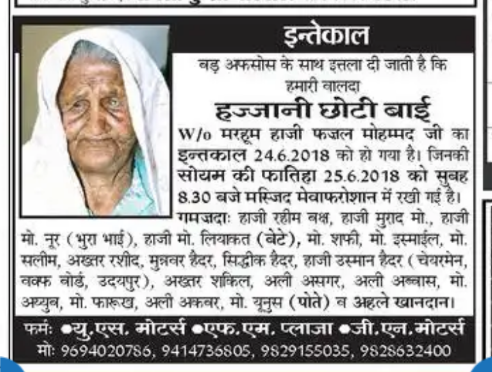 इन्तेकाल
वड़ अफसोस के साथ इत्तला दी जाती है कि
हमारी वालदा
हज्जानी छोटी बाई
W/o मरहूम हाजी फज़ल मोहम्मद जी का
इन्तकाल 24.6.2018 को हो गया है। जिनकी
सोयम की फातिहा 25.6.2018 को सुबह
8.30 बजे मस्जिद मेवाफरोशान में रखी गई है।
गमज़दाः हाजी रहीम बक्ष, हाजी मुराद मो., हाजी
मो. नूर (भुरा भाई), हाजी मो. लियाकत (बेटे), मो. शफी, मो. इस्माईल, मो.
सलीम, अख्तर रशीद, मुन्नवर हैदर, सिद्धीक हैदर, हाजी उस्मान हैदर (चेयरमेन,
वक्फ वोर्ड, उदयपुर), अख्तर शकिल, अली असगर, अली अब्बास, मो.
अय्युब, मो. फारूख, अली अकवर, मो. यूनुस (पोते) व अहले खानदान।
फर्मः ●यु.एस. मोटर्स ●एफ.एम. प्लाजा ●जी.एन.मोटर्स
मोः 9694020786, 9414736805, 9829155035, 9828632400